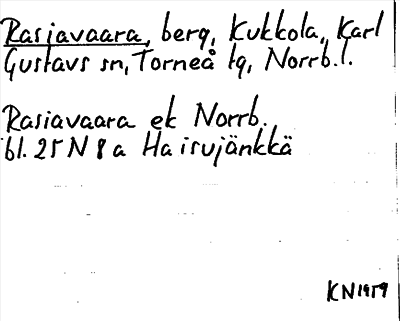 Rasiavaara, berg, Kukkola, Karl
Gustavs sn, Torneå tg, Norrb.l.
Rasiavaara ek Norrb.
bl. 25 N 8 a Haisujänkkä
KN 1959